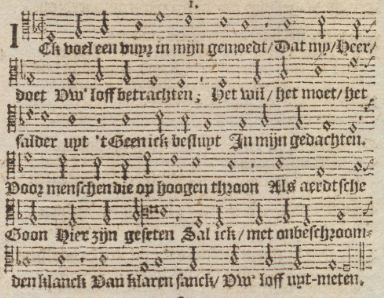 1.
ICk voel een vuyr in mijn gemoedt/Dat my/Heer/
doet Vw' loff betrachten; Het wil/het moet/het
salder uyt 't Geen ick besluyt In mijn gedachten.
Voor menschen die op hoogen throon Als aerdtsche
Goon Hier zijn geseten Sal ick/met onbeschroom-
den klanck Van klaren sanck/Vw' loff uyt-meten.